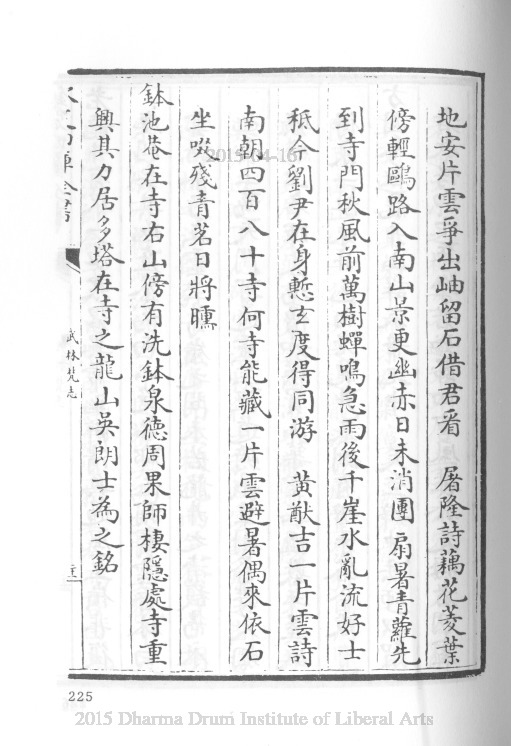 地安片雲爭出岫留石借君看　屠隆詩藕花菱葉
傍輕鷗路入南山景更幽赤日未消團扇暑青蘿先
到寺門秋風前萬樹蟬鳴急雨後千崖水亂流好士
秪今劉尹在身慙玄度得同游　黃猷吉一片雲詩
南朝四百八十寺何寺能藏一片雲避暑偶來依石
坐啜殘青茗日將曛
鉢池菴在寺右山傍有洗鉢泉德周果師棲隱處寺重
興其力居多塔在寺之龍山英朗士為之銘
武林梵志
225
2015-04-16
2015 Dharma Drum Institute of Liberal Arts